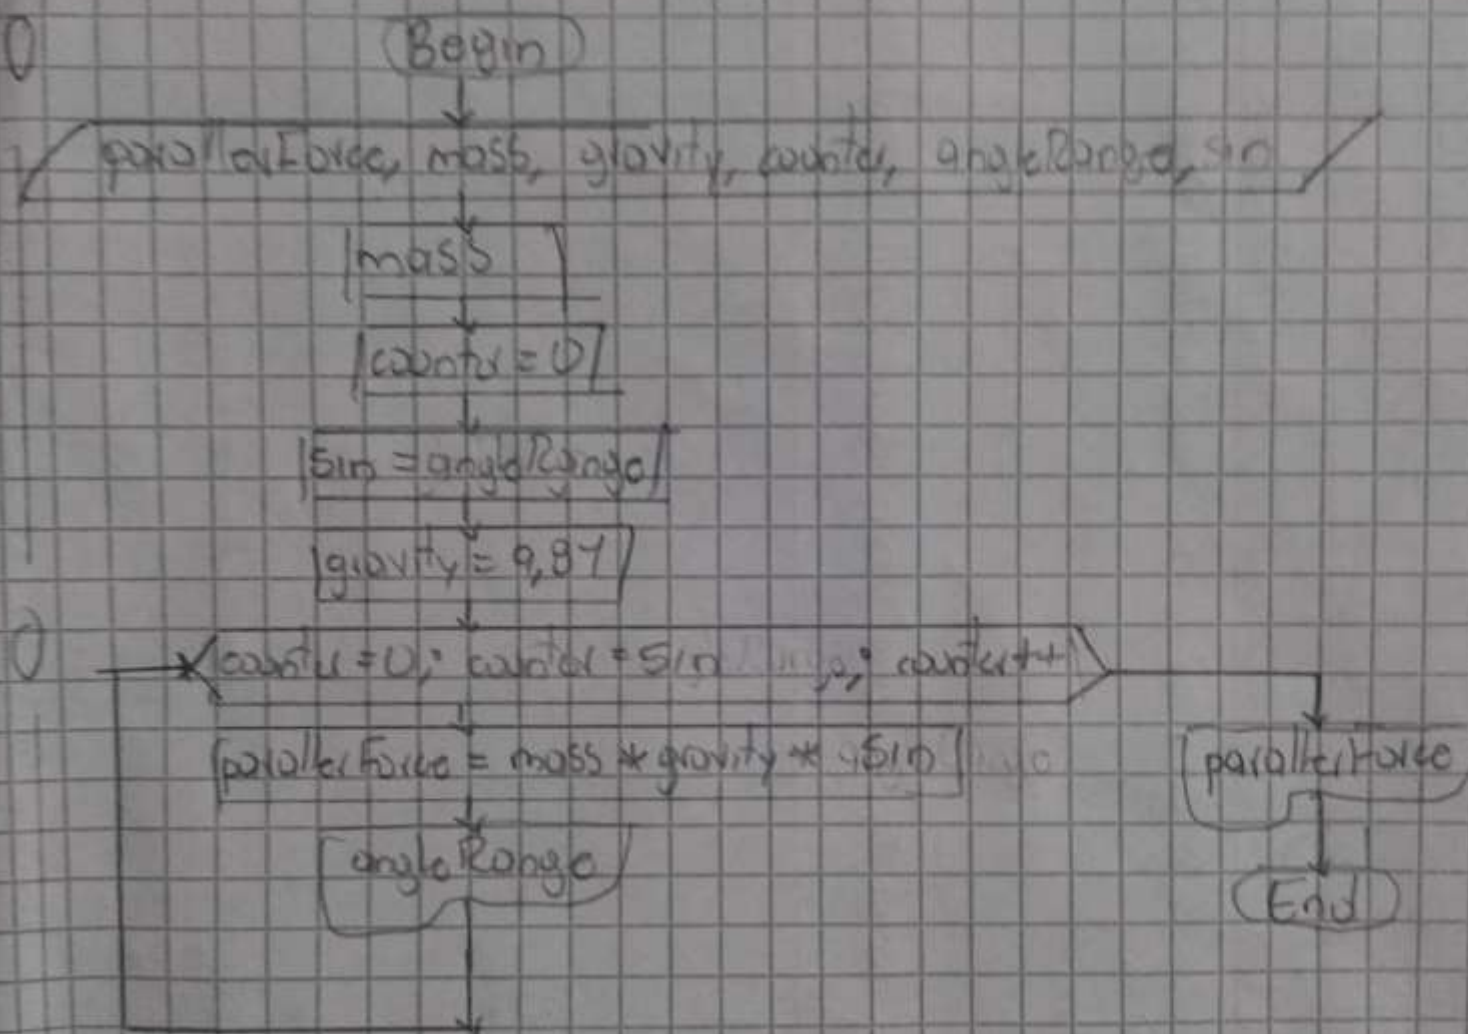 Begin
parallerForce, mass, gravity, counter, angleRange, sin
mass
counter = 0
sin = angleRange
gravity = 9,81
counter = 0; counter = sin ; counter++
parallerForce = mass * gravity * sin
parallerForce
angleRange
End